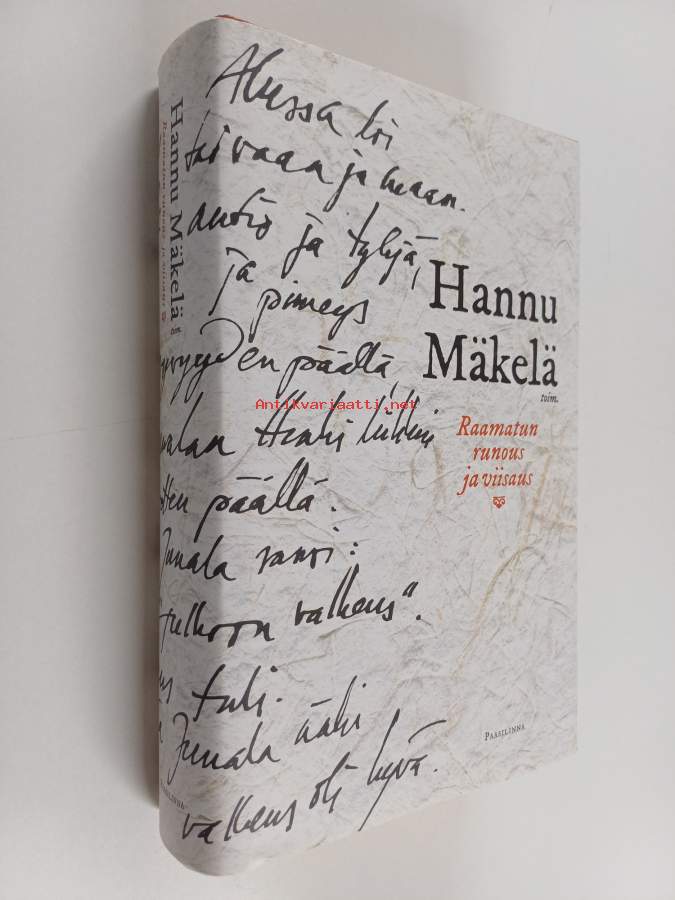 Alussa loi
taivaan ja maan.
autio ja tyhjä,
ja pimeys
syvyyden päällä,
Jumalan Henki liikkui
vetten päällä.
Jumala sanoi:
tulkoon valkeus".
tuli.
Jumala näki
valkeus oli hyvä.
Hannu
Mäkelä
toim.
Raamatun
runous
ja viisaus
PAASILINNA
Hannu Mäkelä toim.
Raamatun runous ja viisaus
PAASILINNA
Antikvariaatti.net